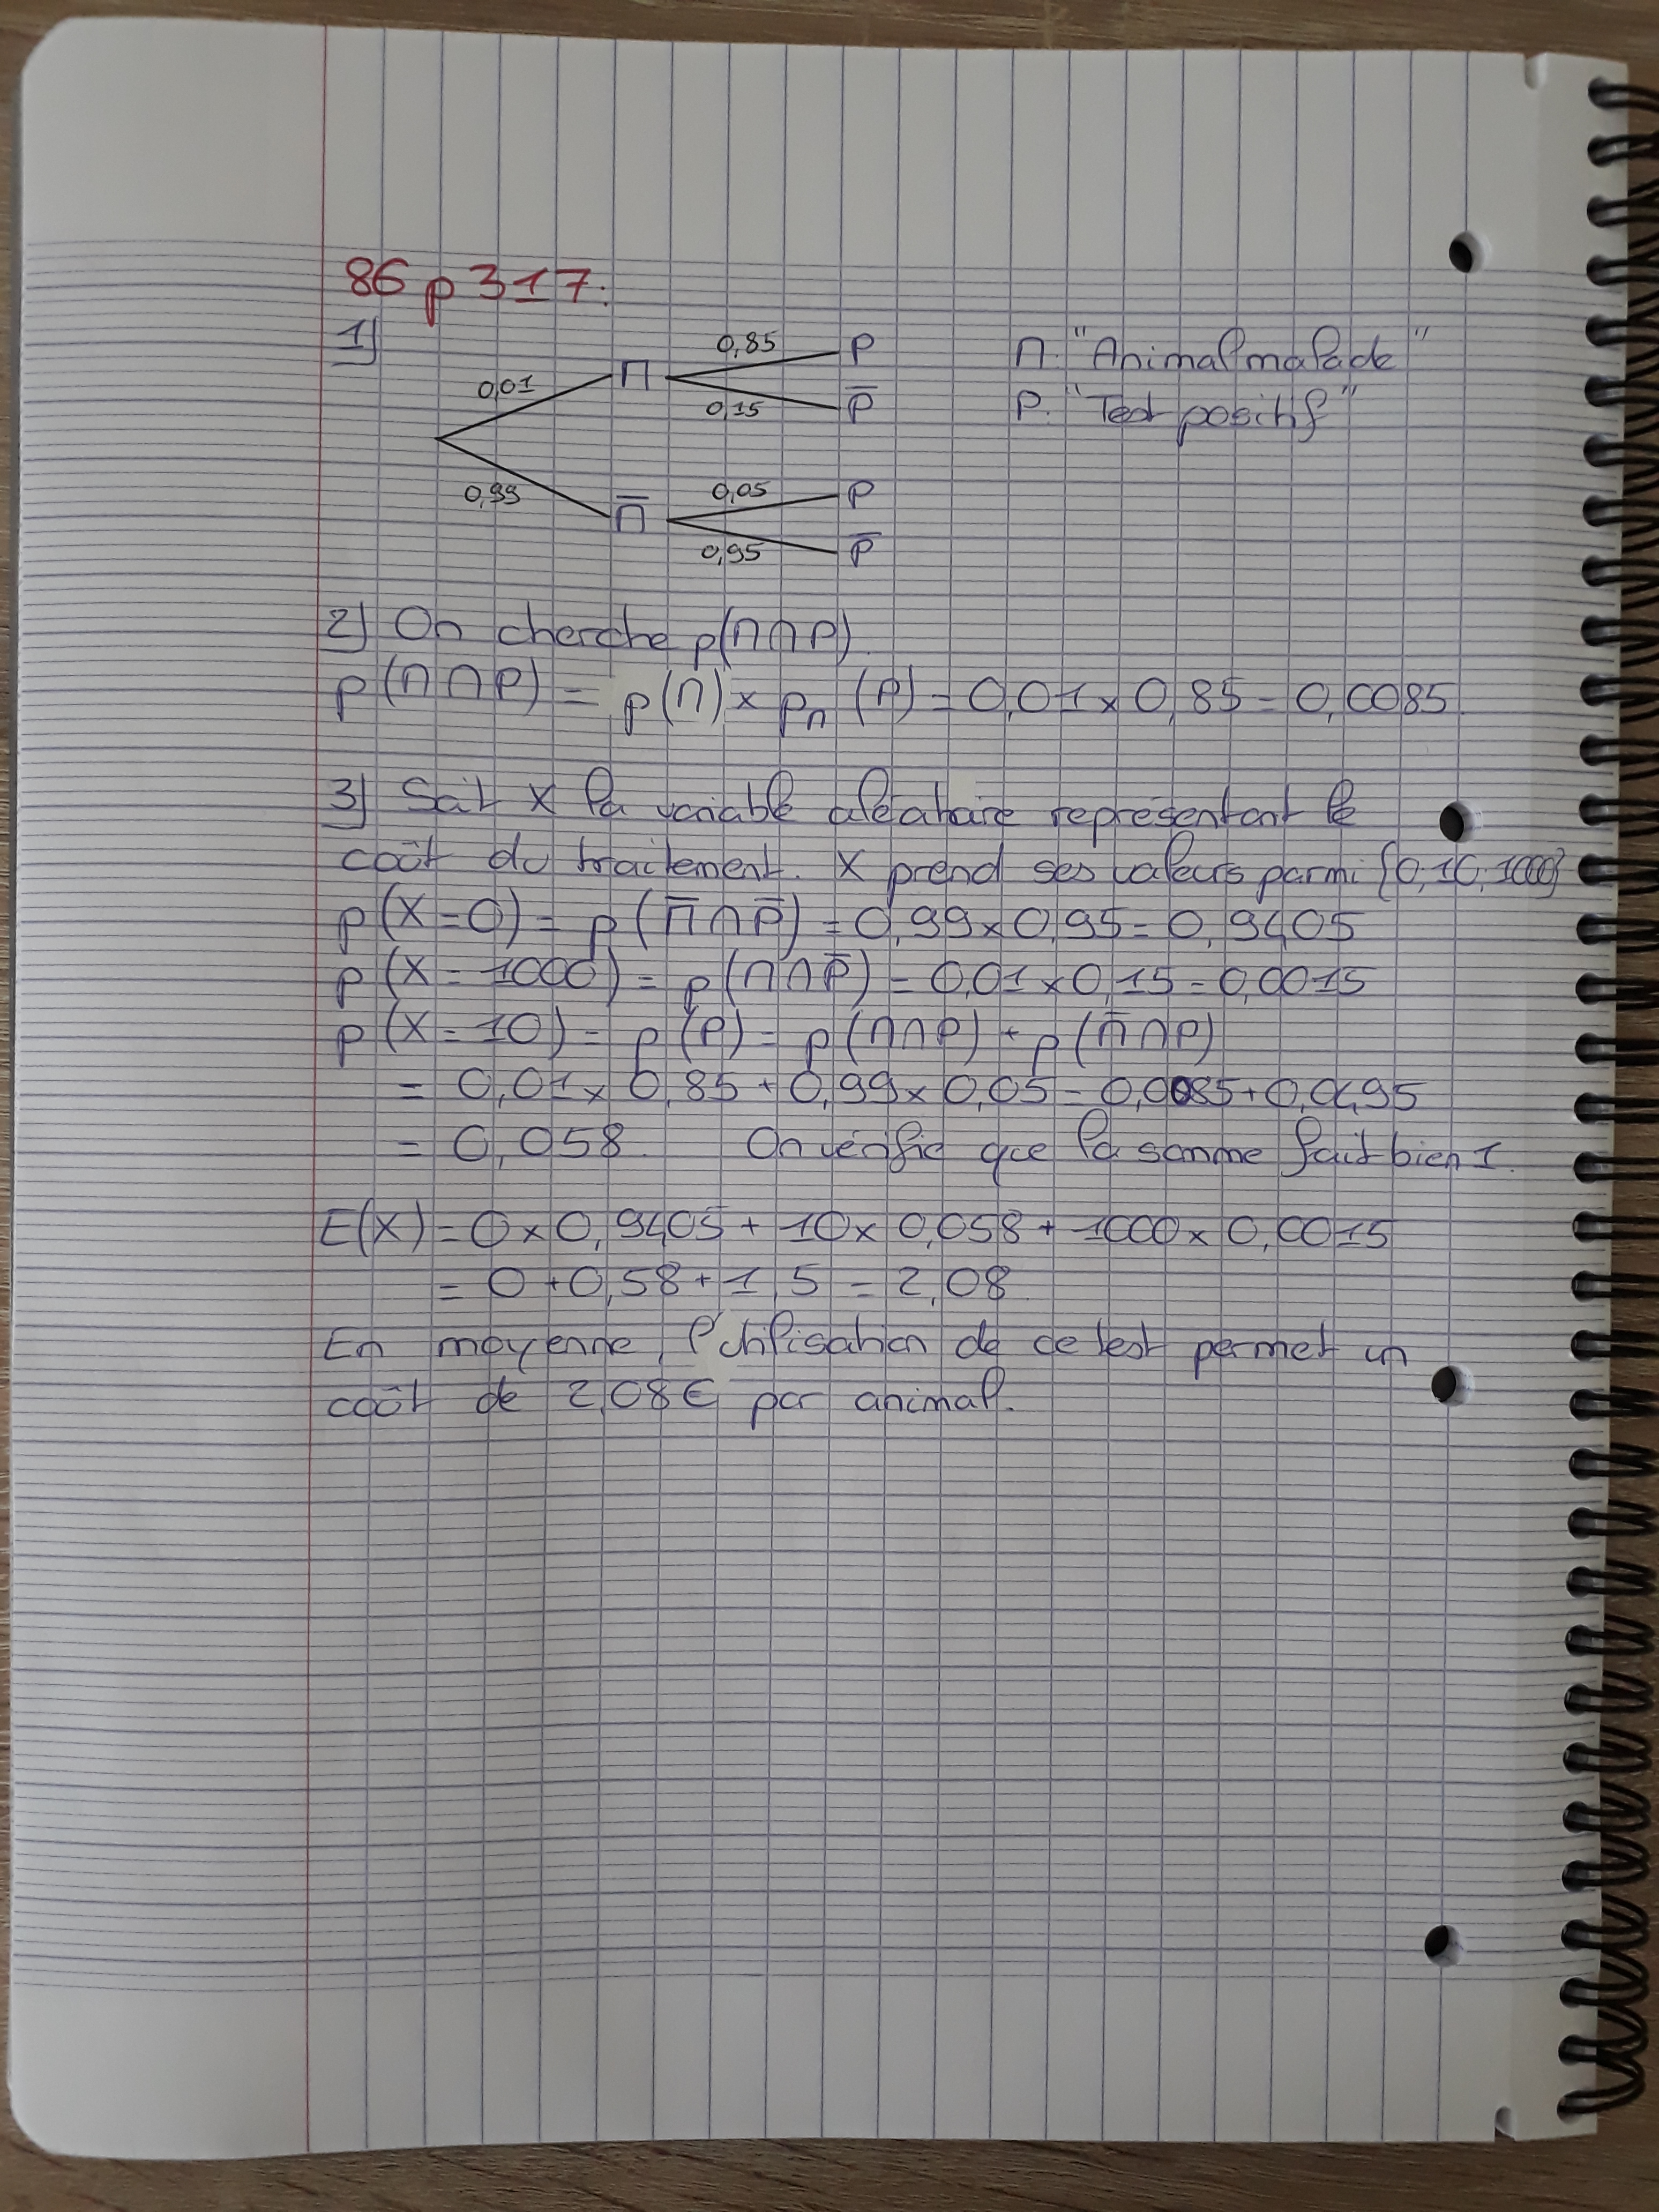 86 p 317:
1)
0,85 P
0,01 M
0,15 P̅
M: "Animal malade"
P: "Test positif"
0,05 P
0,99 M̅
0,95 P̅
2) On cherche p(M∩P).
p(M∩P) = p(M) × p_M(P) = 0,01 × 0,85 = 0,0085.
3) Soit X la variable aléatoire représentant le
coût du traitement. X prend ses valeurs parmi {0;10;1000}
p(X=0) = p(M̅∩P̅) = 0,99 × 0,95 = 0,9405
p(X=1000) = p(M∩P̅) = 0,01 × 0,15 = 0,0015
p(X=10) = p(P) = p(M∩P) + p(M̅∩P)
= 0,01 × 0,85 + 0,99 × 0,05 = 0,0085 + 0,0495
= 0,058. On vérifie que la somme fait bien 1.
E(X) = 0 × 0,9405 + 10 × 0,058 + 1000 × 0,0015
= 0 + 0,58 + 1,5 = 2,08.
En moyenne, l'utilisation de ce test permet un
coût de 2,08€ par animal.